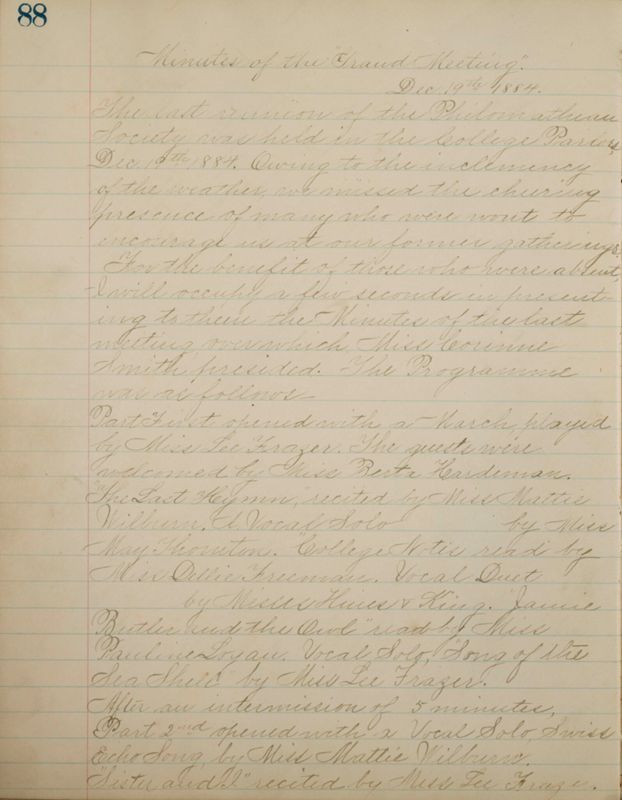 88
Minutes of the "Grand Meeting".
Dec 19th 1884.
The last reunion of the Philomathean
Society was held in the College Parlors
Dec 19th 1884. Owing to the inclemency
of the weather, we missed the cheering
presence of many who were wont to
encourage us at our former gatherings.
For the benefit of those who were absent,
I will occupy a few seconds in present-
ing to them the Minutes of the last
meeting over which Miss Corinne
Smith presided. The Programme
was as follows
Part First opened with a March, played
by Miss Lee Frazer. The guests were
welcomed by Miss Berta Hardeman.
"The Last Hymn, recited by Miss Mattie
Wilburn. A Vocal Solo by Miss
May Thornton. "College Notes read by
Miss Dellie Freeman. Vocal Duet
by Misses Hines & King. "Jamie
Butler and the Owl" read by Miss
Pauline Logan. Vocal Solo, "Song of the
Sea Shell" by Miss Lee Frazer.
After an intermission of 5 minutes,
Part 2nd opened with a Vocal Solo, Swiss
Echo Song, by Miss Mattie Wilburn.
"Sister and I" recited by Miss Lee Frazer.